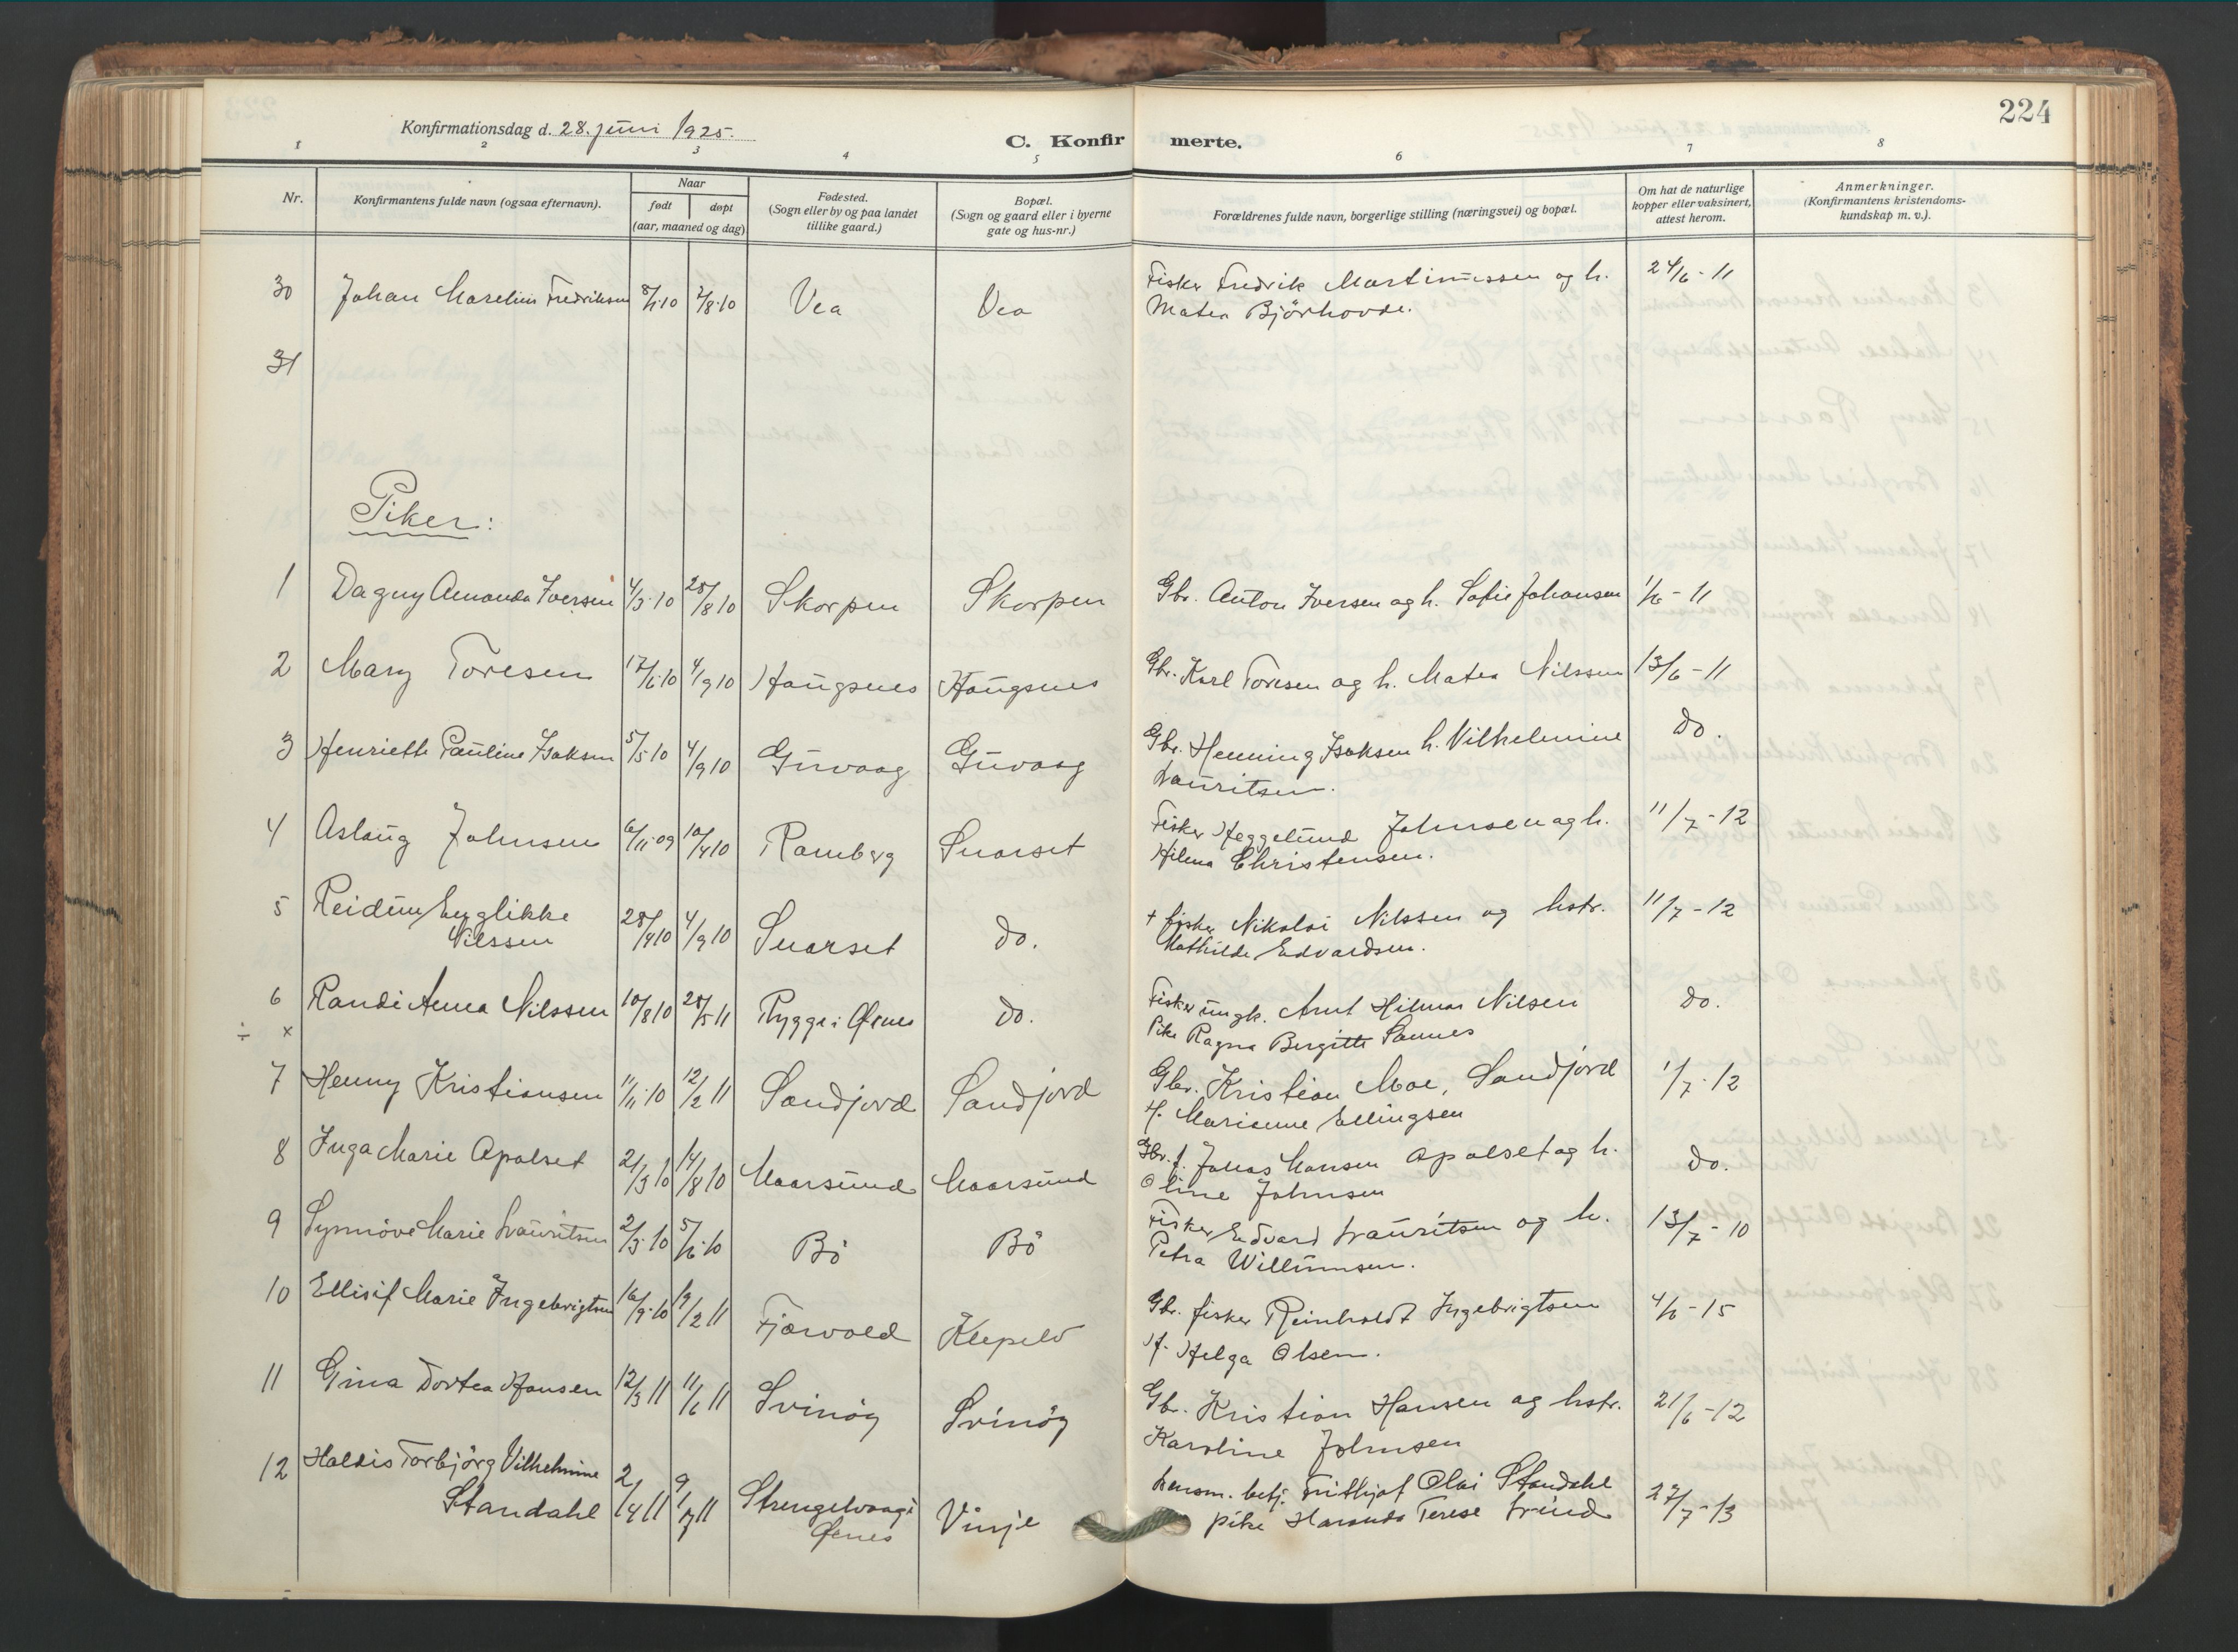 224
Konfirmationsdag d. 28. juni 1925.
C. Konfirmerte.
1 2 3 4 5 6 7 8
Nr.
Konfirmantens fulde navn (ogsaa efternavn).
Naar
født døpt
(aar, maaned og dag)
Fødested.
(Sogn eller by og paa landet
tillike gaard.)
Bopæl.
(Sogn og gaard eller i byerne
gate og hus-nr.)
Forældrenes fulde navn, borgerlige stilling (næringsvei) og bopæl.
Om hat de naturlige
kopper eller vaksinert,
attest herom.
Anmerkninger.
(Konfirmantens kristendoms-
kundskap m. v.).
30 Johan Marelius Fredriksen 7/8 10 Vea Vea Fisker Fredrik Martinussen og h. 24/6 - 11
Matea Björhovde.
31
Piker:
1 Dagny Amanda Iversen 4/3 10 28/8 10 Skorpen Skorpen Gbr. Anton Iversen og h. Sofie Johansen 1/6 - 11
2 Mary Toresen 17/6 10 4/9 10 Haugsnes Haugsnes Gbr. Karl Toresen og h. Matea Nilssen 13/6 - 11
3 Henriette Pauline Isaksen 5/5 10 4/9 10 Guvaag Guvaag Gbr. Henning Isaksen h. Vilhelmine do.
Lauritsen.
4 Aslaug Johnsen 6/11 09 10/4 10 Ramberg Snarset Fisker Heggelund Johnsen og h. 11/7 - 12
Hilma Christensen.
5 Reidun Englikke
Nilssen 28/4 10 4/9 10 Snarset do. + fisker Nikolai Nilssen og hstr. 11/7 - 12
Mathilde Edvardsen.
6 Randi Anna Nilssen 10/8 10 28/5 11 Rygge i Øsnes do. Fisker ungk. Arnt Hilmar Nilsen do.
Pike Ragna Bergitte Sannes
÷ ×
7 Henny Kristiansen 11/11 10 12/2 11 Sandjord Sandjord Gbr. Kristian Moe, Sandjord 1/7 - 12
H. Marianne Ellingsen
8 Inga Marie Apalset 21/3 10 14/8 10 Maarsund Maarsund Gbr. f. Jonas Hansen Apalset og h. do.
Oline Johnsen
9 Synnöve Marie Lauritsen 2/3 10 5/6 10 Bö Bö Fisker Edvard Lauritsen og h. 13/7 - 10
Petra Willumsen.
10 Ellisif Marie Ingebrigtsen 16/9 10 19/2 11 Fjærvold Klepelv Gbr. fisker Reinholdt Ingebrigtsen 4/6 - 15
H. Helga Olsen.
11 Gina Dortea Hansen 12/3 11 11/6 11 Svinöy Svinöy Gbr. Kristian Hansen og hstr. 21/6 - 12
Karoline Johnsen
12 Haldis Torbjörg Vilhelmine
Standahl 2/4 11 9/7 11 Strengelvaag i
Øsnes Vinje Lensm. betj. Frithjof Olai Standahl 27/7 - 13
pike Haranda Terese Lund